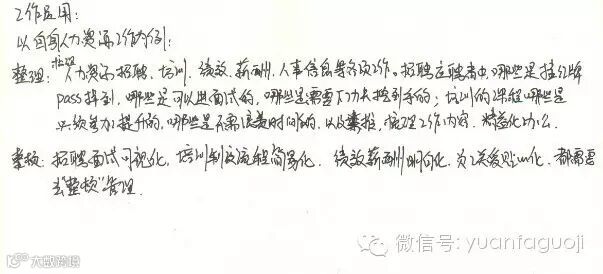 工作应用:
以自身人力资源工作为例:
梳理
整理: 人力资源招聘、培训、绩效、薪酬、人事信息等各项工作。招聘应聘者中, 哪些是挂红牌
pass掉到, 哪些是可以进面试的, 哪些是需要下功夫挖到手的; 培训的课程哪些是
必须参加提升的, 哪些是不需浪费时间的, 以及 梳理工作内容, 精益化办公。
整顿: 招聘面试可视化, 培训制度流程简易化, 绩效薪酬明朗化, 都需要
去"整顿"管理.
大数跨境
微信号: yuanfaguoji